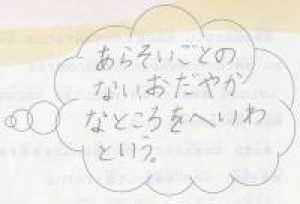 あらそいごとの
ない、おだやか
なところをへいわ
という。